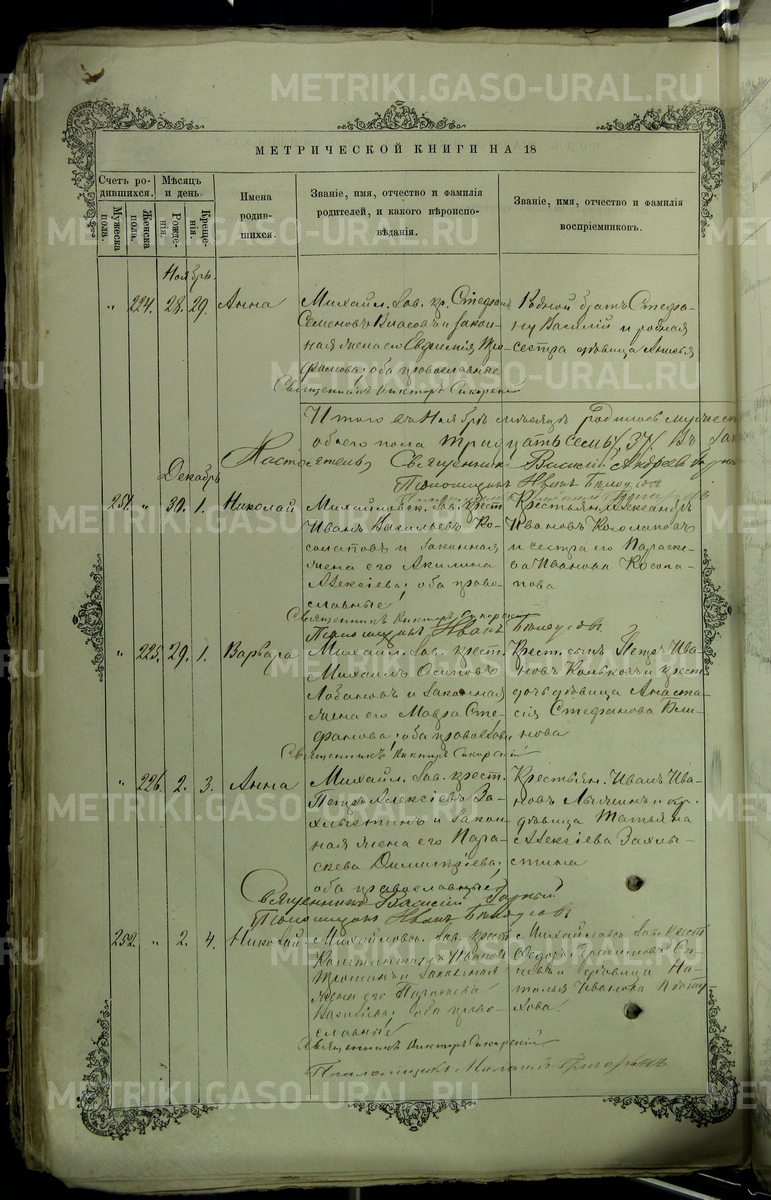 МЕТРИЧЕСКОЙ КНИГИ НА 18
Счетъ ро-
дившихся.
Мѣсяцъ
и день.
Мужеска
пола.
Женска
пола.
Рожде-
нія.
Креще-
нія.
Имена
родив-
шихся.
Званіе, имя, отчество и фамилія
родителей, и какого вѣроиспо-
вѣданія.
Званіе, имя, отчество и фамилія
воспріемниковъ.
Ноябрь.
" 224. 28. 29. Анна
Михайл. зав. кр. Стефанъ
Семеновъ Власовъ и закон-
ная жена его Евфимія
оба православные
Родной братъ Стефа-
ну Василій и родная
сестра дѣвица
Священникъ Викторъ Сикорскій
Итого въ Ноябрѣ мѣсяцѣ родилось
обоего пола тридцать семь /37/.
Настоятель, Священникъ Василій
Псаломщикъ Иванъ Бѣлоусовъ
Декабрь
251. " 30. 1. Николай
Михайловск. зав. крест.
Иванъ Васильевъ Ко-
солаповъ и законная
жена его Акилина
Алексіева; оба право-
славные
Крестьян. Александръ
Ивановъ Косолаповъ
и сестра его Параске-
ва Иванова Косола-
пова
Священникъ Викторъ Сикорскій
Псаломщикъ Иванъ Бѣлоусовъ
" 225. 29. 1. Варвара
Михайл. зав. крест.
Михаилъ Осиповъ
Лобановъ и законная
жена его Мавра Сте-
фанова; оба православн
Крест. сынъ Петръ Ива-
новъ Коньковъ и крест.
дочь дѣвица Анаста-
сія Стефанова
нова
Священникъ Викторъ Сикорскій
" 226. 2. 3. Анна
Михайл. зав. крест.
Петръ Алексіевъ За-
хлыстинъ и закон-
ная жена его Пара-
скева Димитріева;
оба православные
Крестьян. Иванъ Ива-
новъ и
дѣвица Татьяна
Алексіева Захлы-
стина
Священникъ Василій
Псаломщикъ Иванъ Бѣлоусовъ
252. " 2. 4. Николай
Михайловск. зав. крест.
Константинъ Ивановъ
и законная
жена его Параскева
Васильева; оба право-
славные
Михайловск. зав. крест.
Ѳедоръ
и дѣвица На-
талья Иванова
хова.
Священникъ Викторъ Сикорскій
Псаломщикъ
METRIKI.GASO-URAL.RU